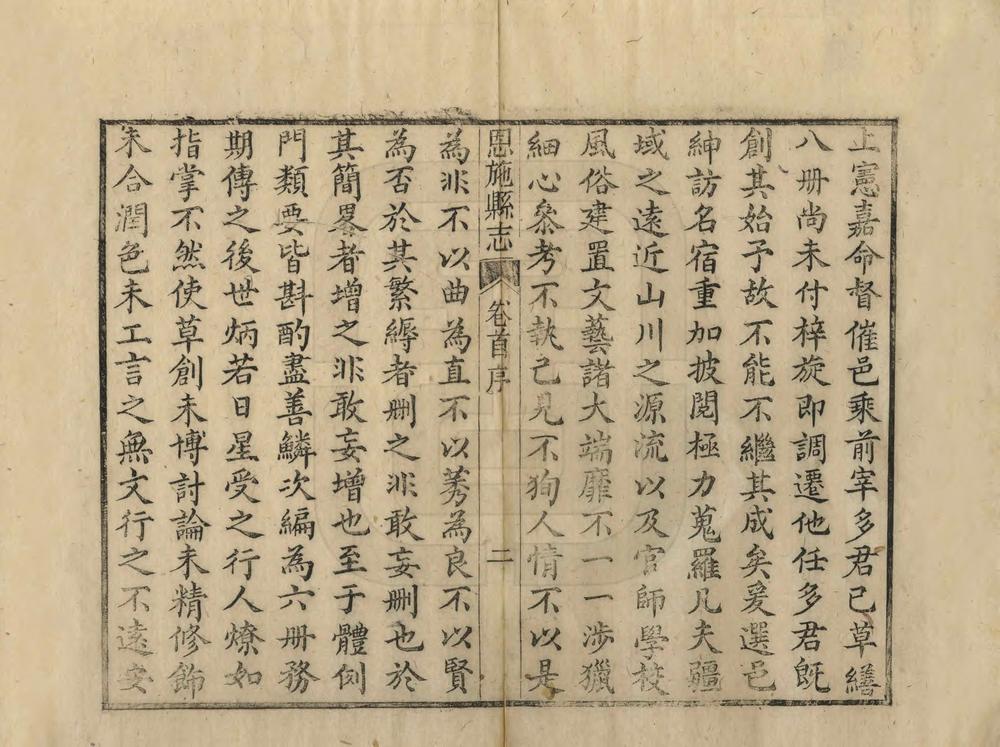 上憲嘉命督催邑乘前宰多君已草繕
八册尚未付梓旋即調遷他任多君旣
創其始予故不能不繼其成矣爰選邑
紳訪名宿重加披閱極力蒐羅凡夫疆
域之遠近山川之源流以及官師學校
風俗建置文藝諸大端靡不一一涉獵
細心叅考不執己見不狥人情不以是
恩施縣志
卷首序
二
為非不以曲為直不以莠為良不以賢
為否於其繁縟者删之非敢妄删也於
其簡畧者增之非敢妄增也至于體例
門類要皆斟酌盡善鱗次編為六册務
期傳之後世炳若日星受之行人燎如
指掌不然使草創未博討論未精修飾
未合潤色未工言之無文行之不遠安